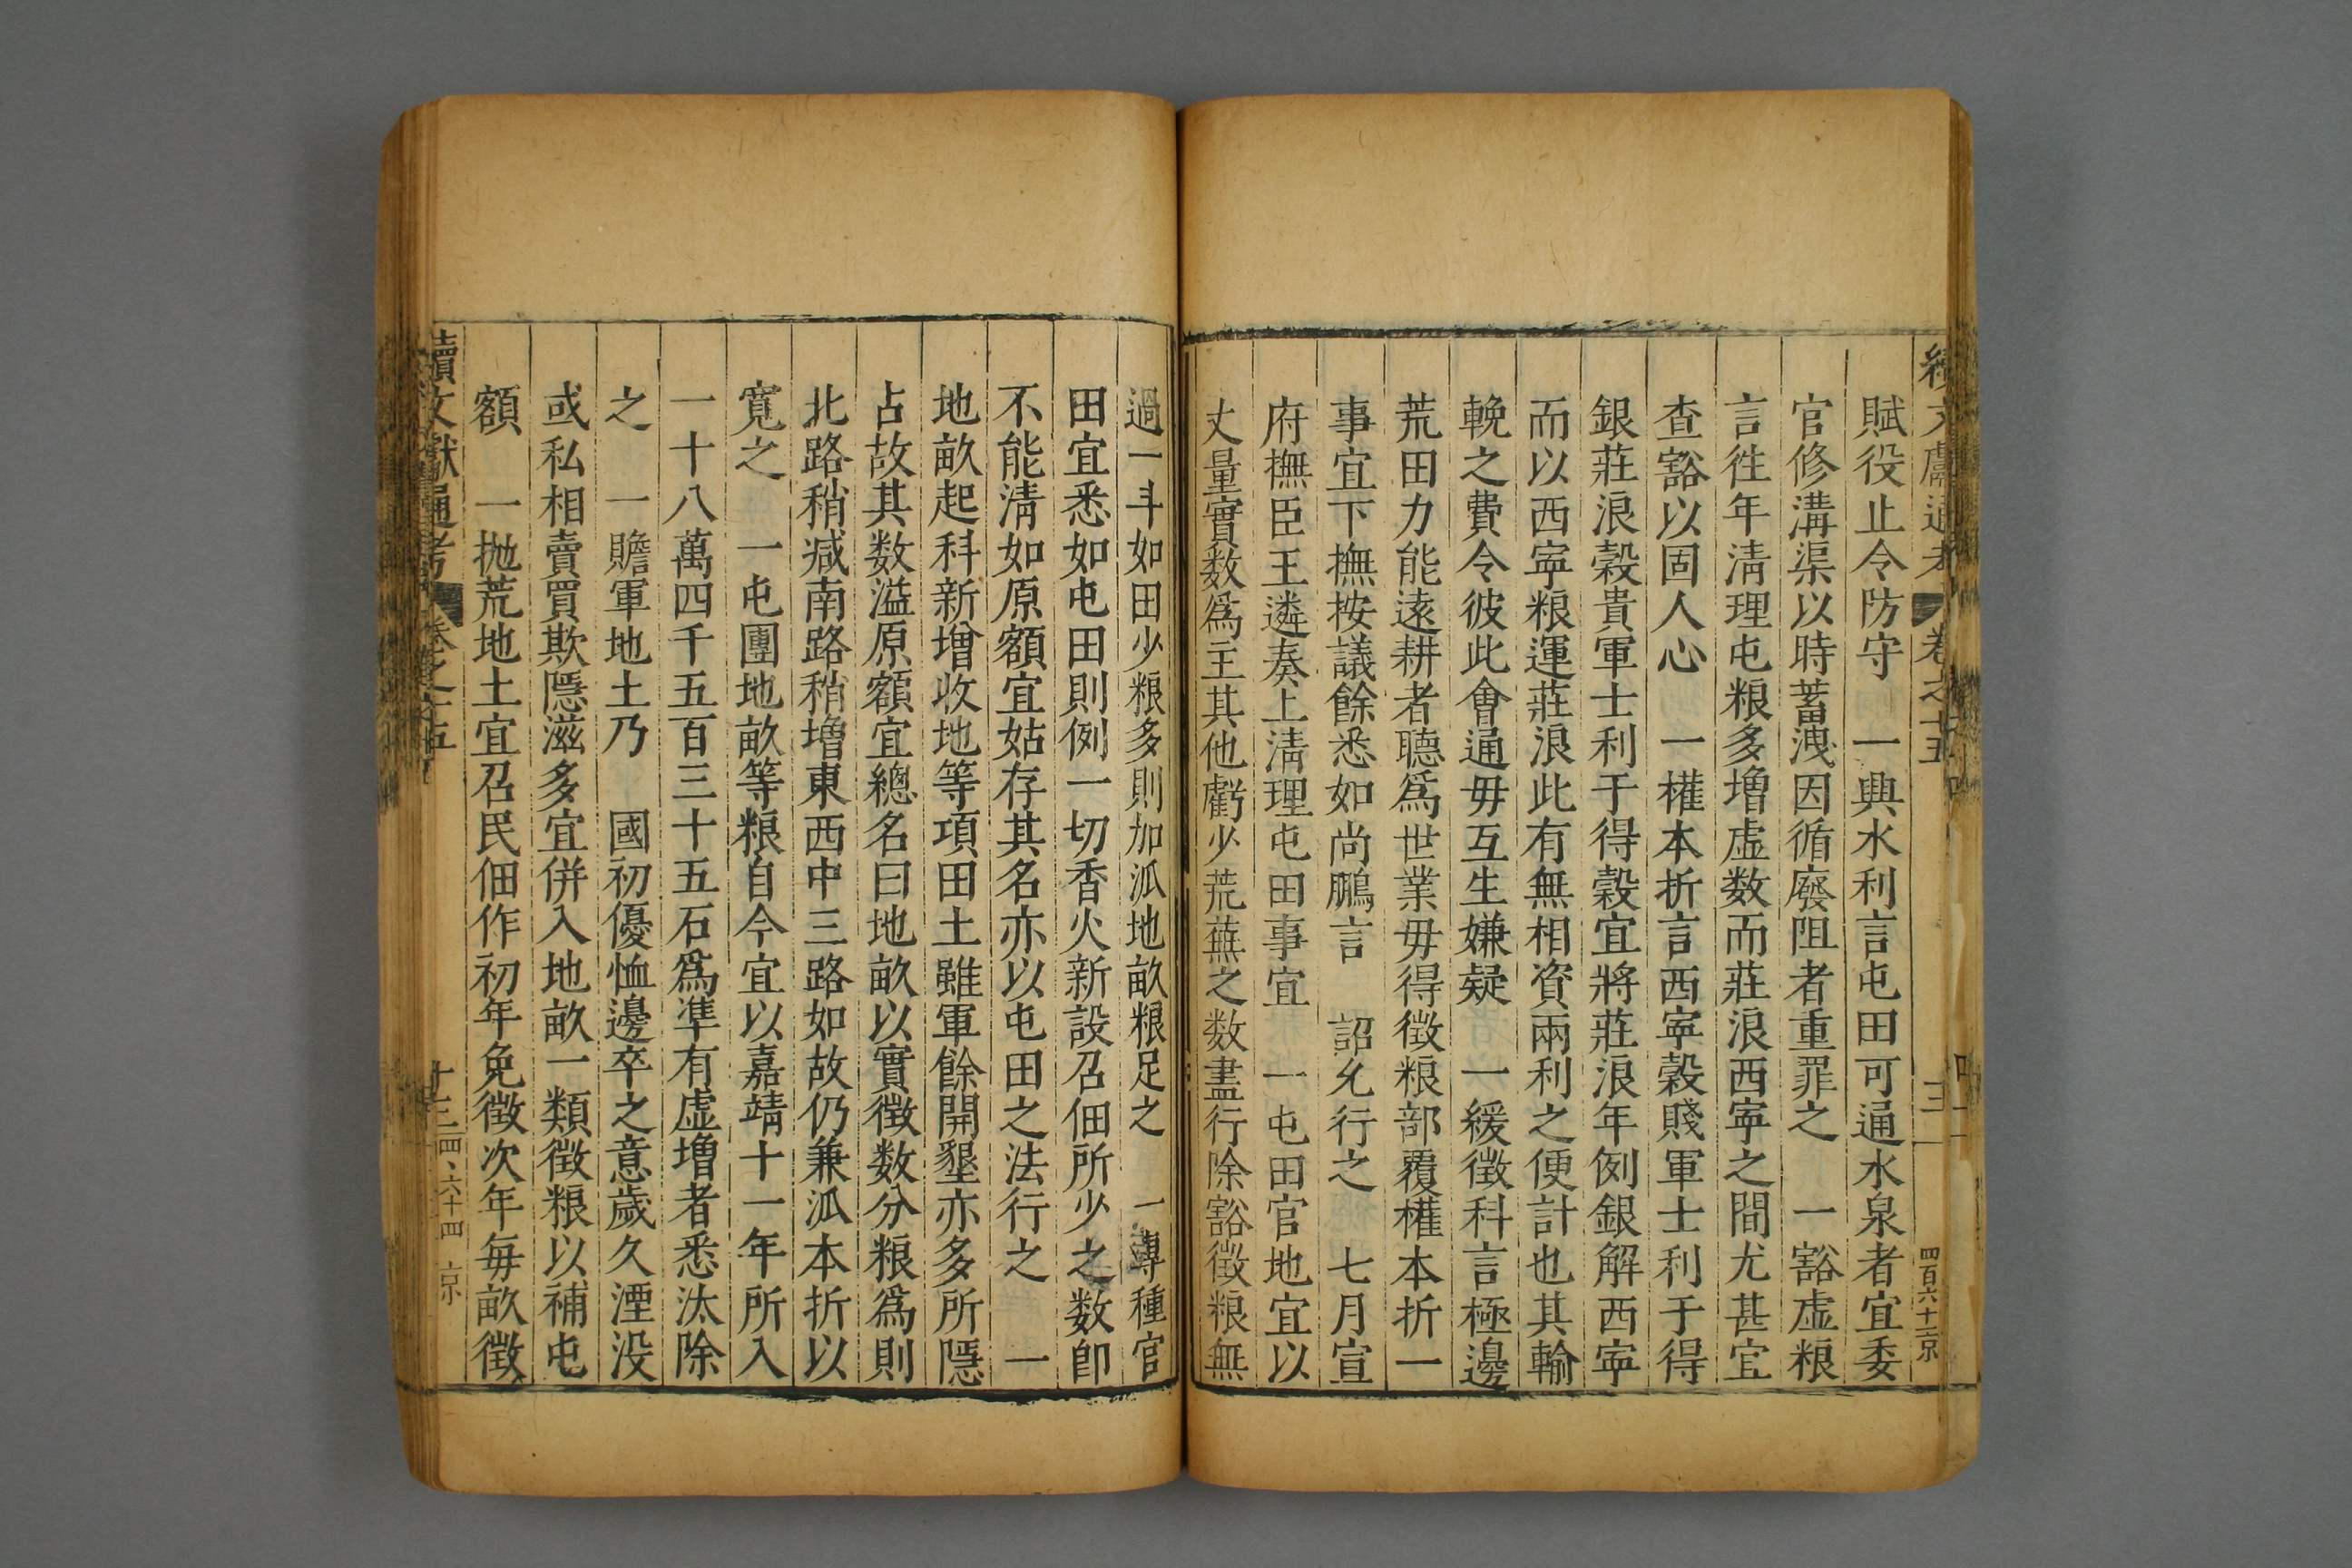 賦役止令防守　一興水利言屯田可通水泉者宜委
官修溝渠以時蓄洩因循廢阻者重罪之　一豁虛粮
言徃年淸理屯粮多增虛数而莊浪西寕之間尤甚宜
查豁以固人心　一權本折言西寕穀賤軍士利于得
銀莊浪穀貴軍士利于得穀宜將莊浪年例銀解西寕
而以西寕粮運莊浪此有無相資兩利之便計也其輸
輓之費令彼此會通毋互生嫌疑　一緩徵科言極邊
荒田力能遠耕者聽爲世業毋得徵粮部覆權本折一
事宜下撫按議餘悉如尚鵬言　詔允行之　七月宣
府撫臣王遴奏上淸理屯田事宜　一屯田官地宜以
丈量實数爲主其他虧少荒蕪之数盡行除豁徵粮無
過一斗如田少粮多則加派地畝粮足之　一傳種官
田宜悉如屯田則例一切香火新設召佃所少之数卽
不能淸如原額宜姑存其名亦以屯田之法行之　一
地畝起科新增收地等項田土雖軍餘開墾亦多所隱
占故其数溢原額宜總名曰地畝以實徵数分粮爲則
北路稍减南路稍增東西中三路如故仍兼派本折以
寬之　一屯團地畝等粮自今宜以嘉靖十一年所入
一十八萬四千五百三十五石爲準有虛增者悉汰除
之　一贍軍地土乃　國初優恤邊卒之意歲久湮没
或私相賣買欺隱滋多宜併入地畝一類徵粮以補屯
額　一抛荒地土宜召民佃作初年免徵次年每畝徵